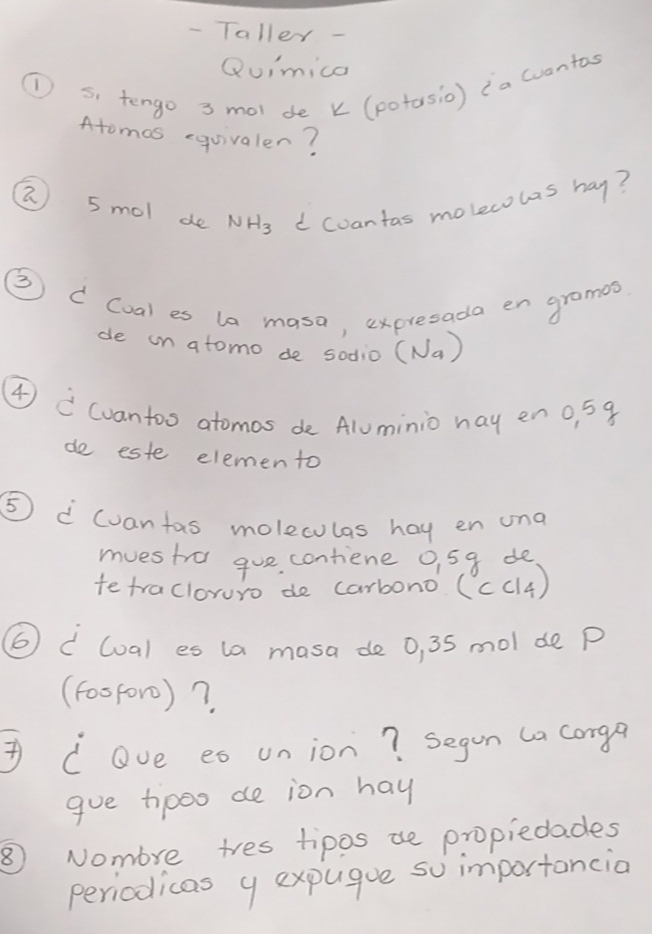 - Taller -
Química
① Si tengo 3 mol de K (potasio) ¿a cuantas
Atomos equivalen?
② 5 mol de NH3 ¿ cuantas moleculas hay?
③ ¿ Cual es la masa, expresada en gramos.
de un atomo de sodio (Na)
④ ¿ Cuantos atomos de Aluminio hay en 0,5g
de este elemento
⑤ ¿ Cuantas moleculas hay en una
muestra que contiene 0,5g de
tetracloruro de carbono (CCl4)
⑥ ¿ Cual es la masa de 0,35 mol de P
(fosforo) ?
7 ¿ Que es un ion ? Segun la carga
que tipos de ion hay
⑧ Nombre tres tipos de propiedades
periodicas y explique su importancia